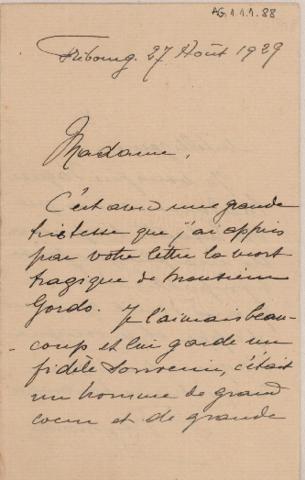 AG 1.1.1.88
Fribourg. 27 Août 1929
Madame,
C'est avec une grande
tristesse que j'ai appris
par votre lettre la mort
tragique de Monsieur
Gordo. Je l'aimais beau-
-coup et lui garde un
fidèle souvenir, c'était
un homme de grand
coeur et de grande